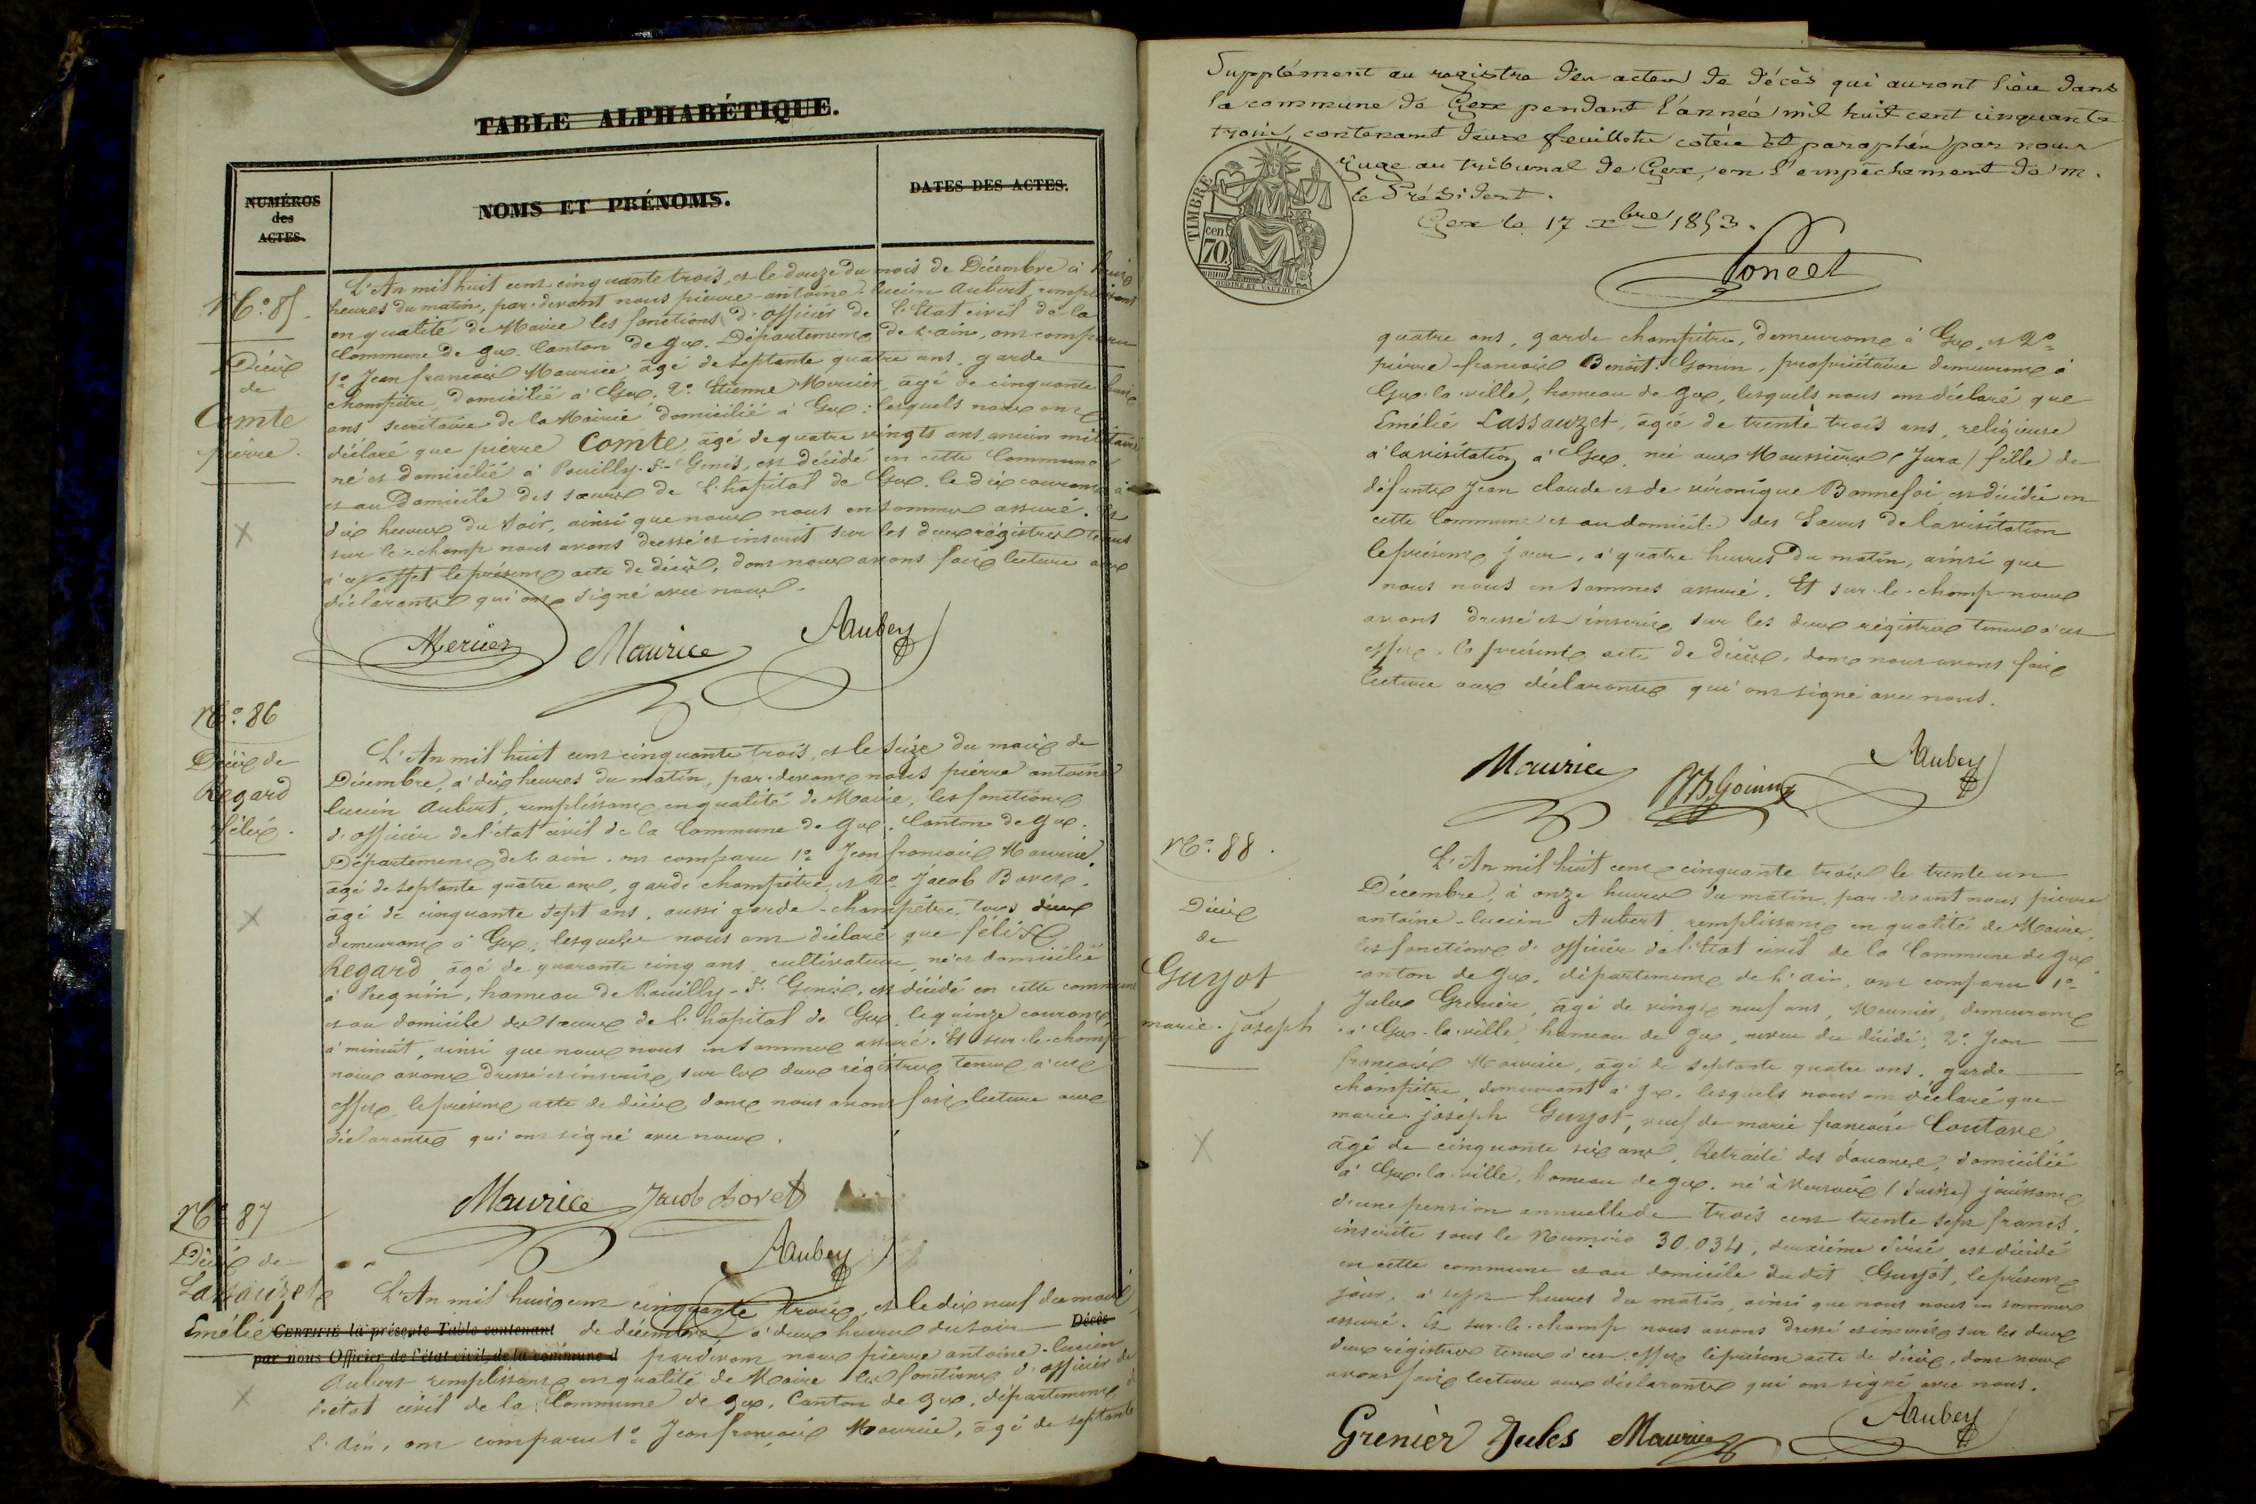 TABLE ALPHABÉTIQUE.
NUMÉROS
des
ACTES.
NOMS ET PRÉNOMS.
DATES DES ACTES.
No. 85.
Décès
de
Comte
pierre.
L'An mil huit cent cinquante trois, et le douze du mois de Décembre à huit
heures du matin, par-devant nous pierre-antoine-lucien Aubert, remplissant
en qualité de Maire les fonctions d'officier de l'Etat civil de la
Commune de Gex. Canton de Gex. Département de l'ain, ont comparu
1o Jean françois Maurice âgé de septante quatre ans, garde
champêtre, domicilié à Gex. 2o. Etienne Mercier, âgé de cinquante huit
ans secrétaire de la Mairie domicilié à Gex; lesquels nous ont
déclaré que pierre Comte, âgé de quatre vingts ans, ancien militaire
né et domicilié à Pouilly-St-Genis, est décédé en cette Commune
et au Domicile des sœurs de l'hopital de Gex. le dix courant à
dix heures du soir, ainsi que nous nous en sommes assuré. Et
sur-le-champ nous avons dressé et inscrit sur les deux régistres tenus
à cet effet le présent acte de décès, dont nous avons fait lecture aux
déclarants qui ont signé avec nous.
Mercier Maurice AAubert
No. 86
Décès de
Regard
félix.
L'An mil huit cent cinquante trois, et le seize du mois de
Décembre, à dix heures du matin, par-devant nous pierre antoine
lucien Aubert, remplissant en qualité de Maire, les fonctions
d'officier de l'état civil de la Commune de Gex. Canton de Gex.
Département de l'ain. ont comparu 1o Jean françois Maurice,
âgé de septante quatre ans, garde champêtre, et 2o Jacob Bovet.
âgé de cinquante sept ans, aussi garde-champêtre, tous deux
demeurant à Gex; lesquels nous ont déclaré que félix
Regard, âgé de quarante cinq ans, cultivateur, né et domicilié
à Pregnin, hameau de Pouilly-St. Genis, est décédé en cette commune
et au domicile des sœurs de l'hopital de Gex, le quinze courant,
à minuit, ainsi que nous nous en sommes assuré. Et sur-le-champ
nous avons dressé et inscrit, sur les deux régistres tenus à cet
effet, le présent acte de décès dont nous avons fait lecture aux
déclarants qui ont signé avec nous.
Maurice Jacob Bovet
AAubert
No 87
Décès de
Lassauzet
Emélie
L'An mil huit cent cinquante trois, et le dix neuf du mois
CERTIFIÉ la présente Table contenant de décembre à deux heures du soir Décès
par nous Officier de l'état civil, de la commune d pardevant nous pierre antoine-lucien
Aubert remplissant en qualité de Maire les fonctions d'officier de
l'état civil de la Commune de Gex, Canton de Gex, département de
l'Ain, ont comparu 1o Jean françois Maurice, âgé de septante
Supplément au registre des actes de décès qui auront lieu dans
la commune de Gex pendant l'année mil huit cent cinquante
trois, contenant deux feuillets cotés et paraphés par nous
juge au tribunal de Gex, en l'empêchement de m.
le Président.
Gex le 17 xbre 1853.
TIMBRE
cen
70
quatre ans, garde champêtre, demeurant à Gex, et 2o
pierre-françois Benoit Gonin, propriétaire demeurant à
Gex-la-ville, hameau de Gex, lesquels nous ont déclaré que
Emélie Lassauzet, âgée de trente trois ans, religieuse
à la visitation à Gex, née aux Moussières (Jura) fille de
défunts Jean claude et de véronique Bonnefoi est décédée en
cette Commune et au domicile des Sœurs de la visitation
le présent jour, à quatre heures du matin, ainsi que
nous nous en sommes assuré. Et sur-le-champ nous
avons dressé et inscrit, sur les deux régistres tenus à cet
effet, le présent acte de décès, dont nous avons fait
lecture aux déclarants qui ont signé avec nous.
Maurice AAubert
No. 88.
Décès
de
Guyot
marie-joseph
L'An mil huit cent cinquante trois le trente un
Décembre, à onze heures du matin, par-devant nous pierre
antoine-lucien Aubert, remplissant en qualité de Maire,
les fonctions d'officier de l'Etat civil de la Commune de Gex
canton de Gex, département de l'Ain, ont comparu 1o
Jules Grenier, âgé de vingt neuf ans, Meunier, demeurant
à Gex-la-ville, hameau de Gex, neveu du décédé; 2o. Jean
françois Maurice, âgé de septante quatre ans, garde
champêtre, demeurant à Gex, lesquels nous ont déclaré que
marie-joseph Guyot, veuf de marie françoise
âgé de cinquante six ans, Retraité des douanes, domicilié
à Gex-la-ville, hameau de Gex, né à Versoix (Suisse) jouissant
d'une pension annuelle de trois cent trente sept francs,
inscrite sous le Numéro 30,034, deuxième Série, est décédé
en cette commune et au domicile du dit Guyot, le présent
jour, à sept heures du matin, ainsi que nous nous en sommes
assuré. Et sur-le-champ nous avons dressé et inscrit sur les deux
deux régistres tenus à cet effet le présent acte de décès, dont nous
avons fait lecture aux déclarants qui ont signé avec nous.
Grenier Jules Maurice AAubert